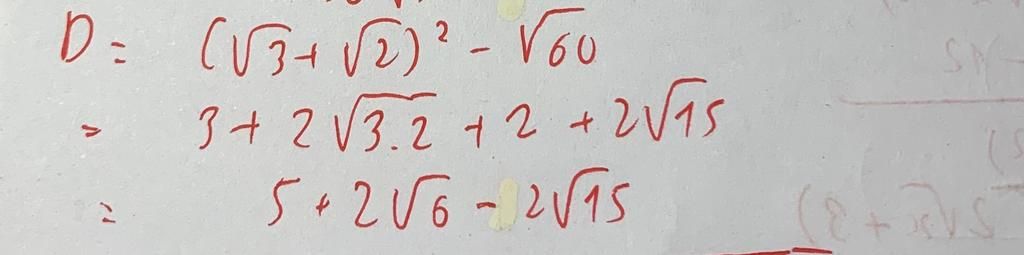 D = (√3 + √2)² - √60
= 3 + 2√3.2 + 2 + 2√15
= 5 + 2√6 - 2√15